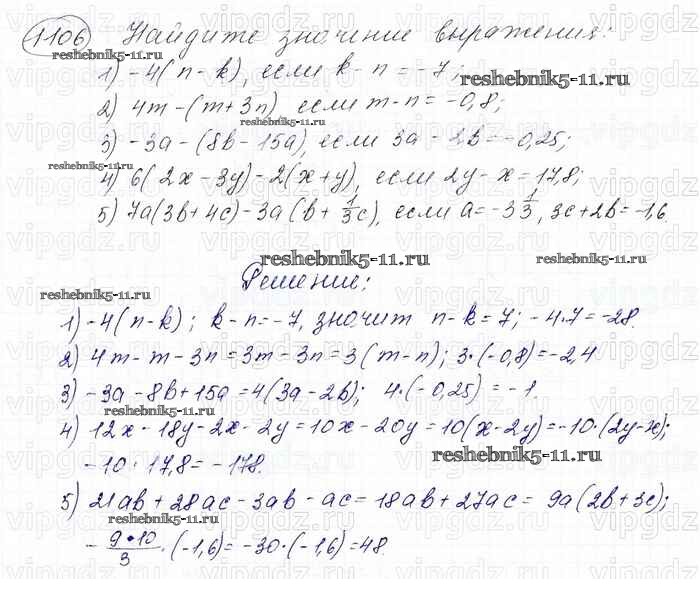 1106 Найдите значение выражения:
reshebnik5-11.ru
1) -4(n-k), если k-n=-7;
reshebnik5-11.ru
2) 4m-(m+3n) если m-n=-0,8;
reshebnik5-11.ru
3) -3a-(8b-15a), если 3a-2b=-0,25;
reshebnik5-11.ru
4) 6(2x-3y)-2(x+y), если 2y-x=17,8;
5) 7a(3b+4c)-3a(b+1/3c), если a=-3 1/3, 3c+2b=-1,6
reshebnik5-11.ru
reshebnik5-11.ru
Решение:
reshebnik5-11.ru
1) -4(n-k); k-n=-7, значит n-k=7; -4·7=-28.
2) 4m-m-3n=3m-3n=3(m-n); 3·(-0,8)=-2,4
3) -3a-8b+15a=4(3a-2b); 4·(-0,25)=-1
reshebnik5-11.ru
4) 12x-18y-2x-2y=10x-20y=10(x-2y)=-10·(2y-x);
reshebnik5-11.ru
-10·17,8=-178.
5) 21ab+28ac-3ab-ac=18ab+27ac=9a(2b+3c);
reshebnik5-11.ru
-9·10/3·(-1,6)=-30·(-1,6)=48.